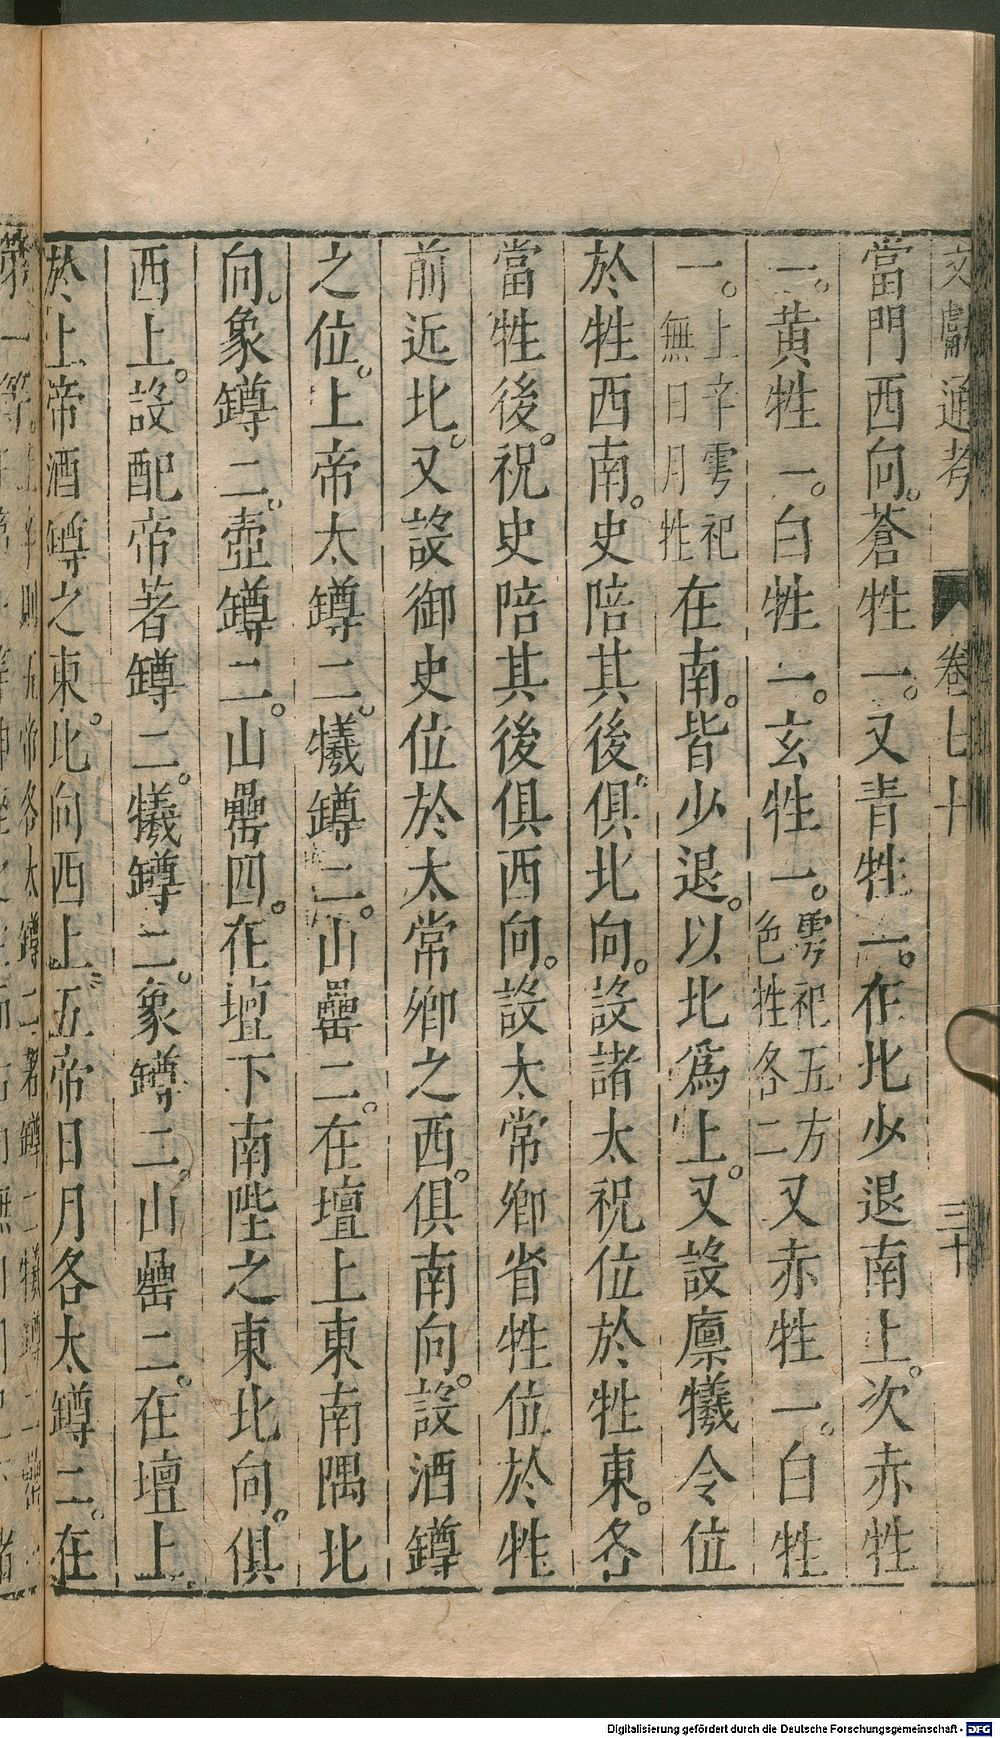 文獻通考 卷七十 三十
當門西向。蒼牲一。又青牲一。在北少退南上。次赤牲
一。黃牲一。白牲一。玄牲一。雩祀五方色牲各二又赤牲一。白牲
一。上辛雩祀無日月牲在南。皆少退。以北爲上。又設廪犧令位
於牲西南。史陪其後。俱北向。設諸太祝位於牲東。各
當牲後。祝史陪其後俱西向。設太常卿省牲位於牲
前近北。又設御史位於太常卿之西。俱南向。設酒罇
之位。上帝太罇二。犧罇二。山罍二。在壇上東南隅北
向。象罇二。壺罇二。山罍四。在壇下南陛之東北向。俱
西上。設配帝著罇二。犧罇二。象罇二。山罍二。在壇上。
於上帝酒罇之東。北向西上。五帝日月各太罇二。在
Digitalisierung gefördert durch die Deutsche Forschungsgemeinschaft - DFG